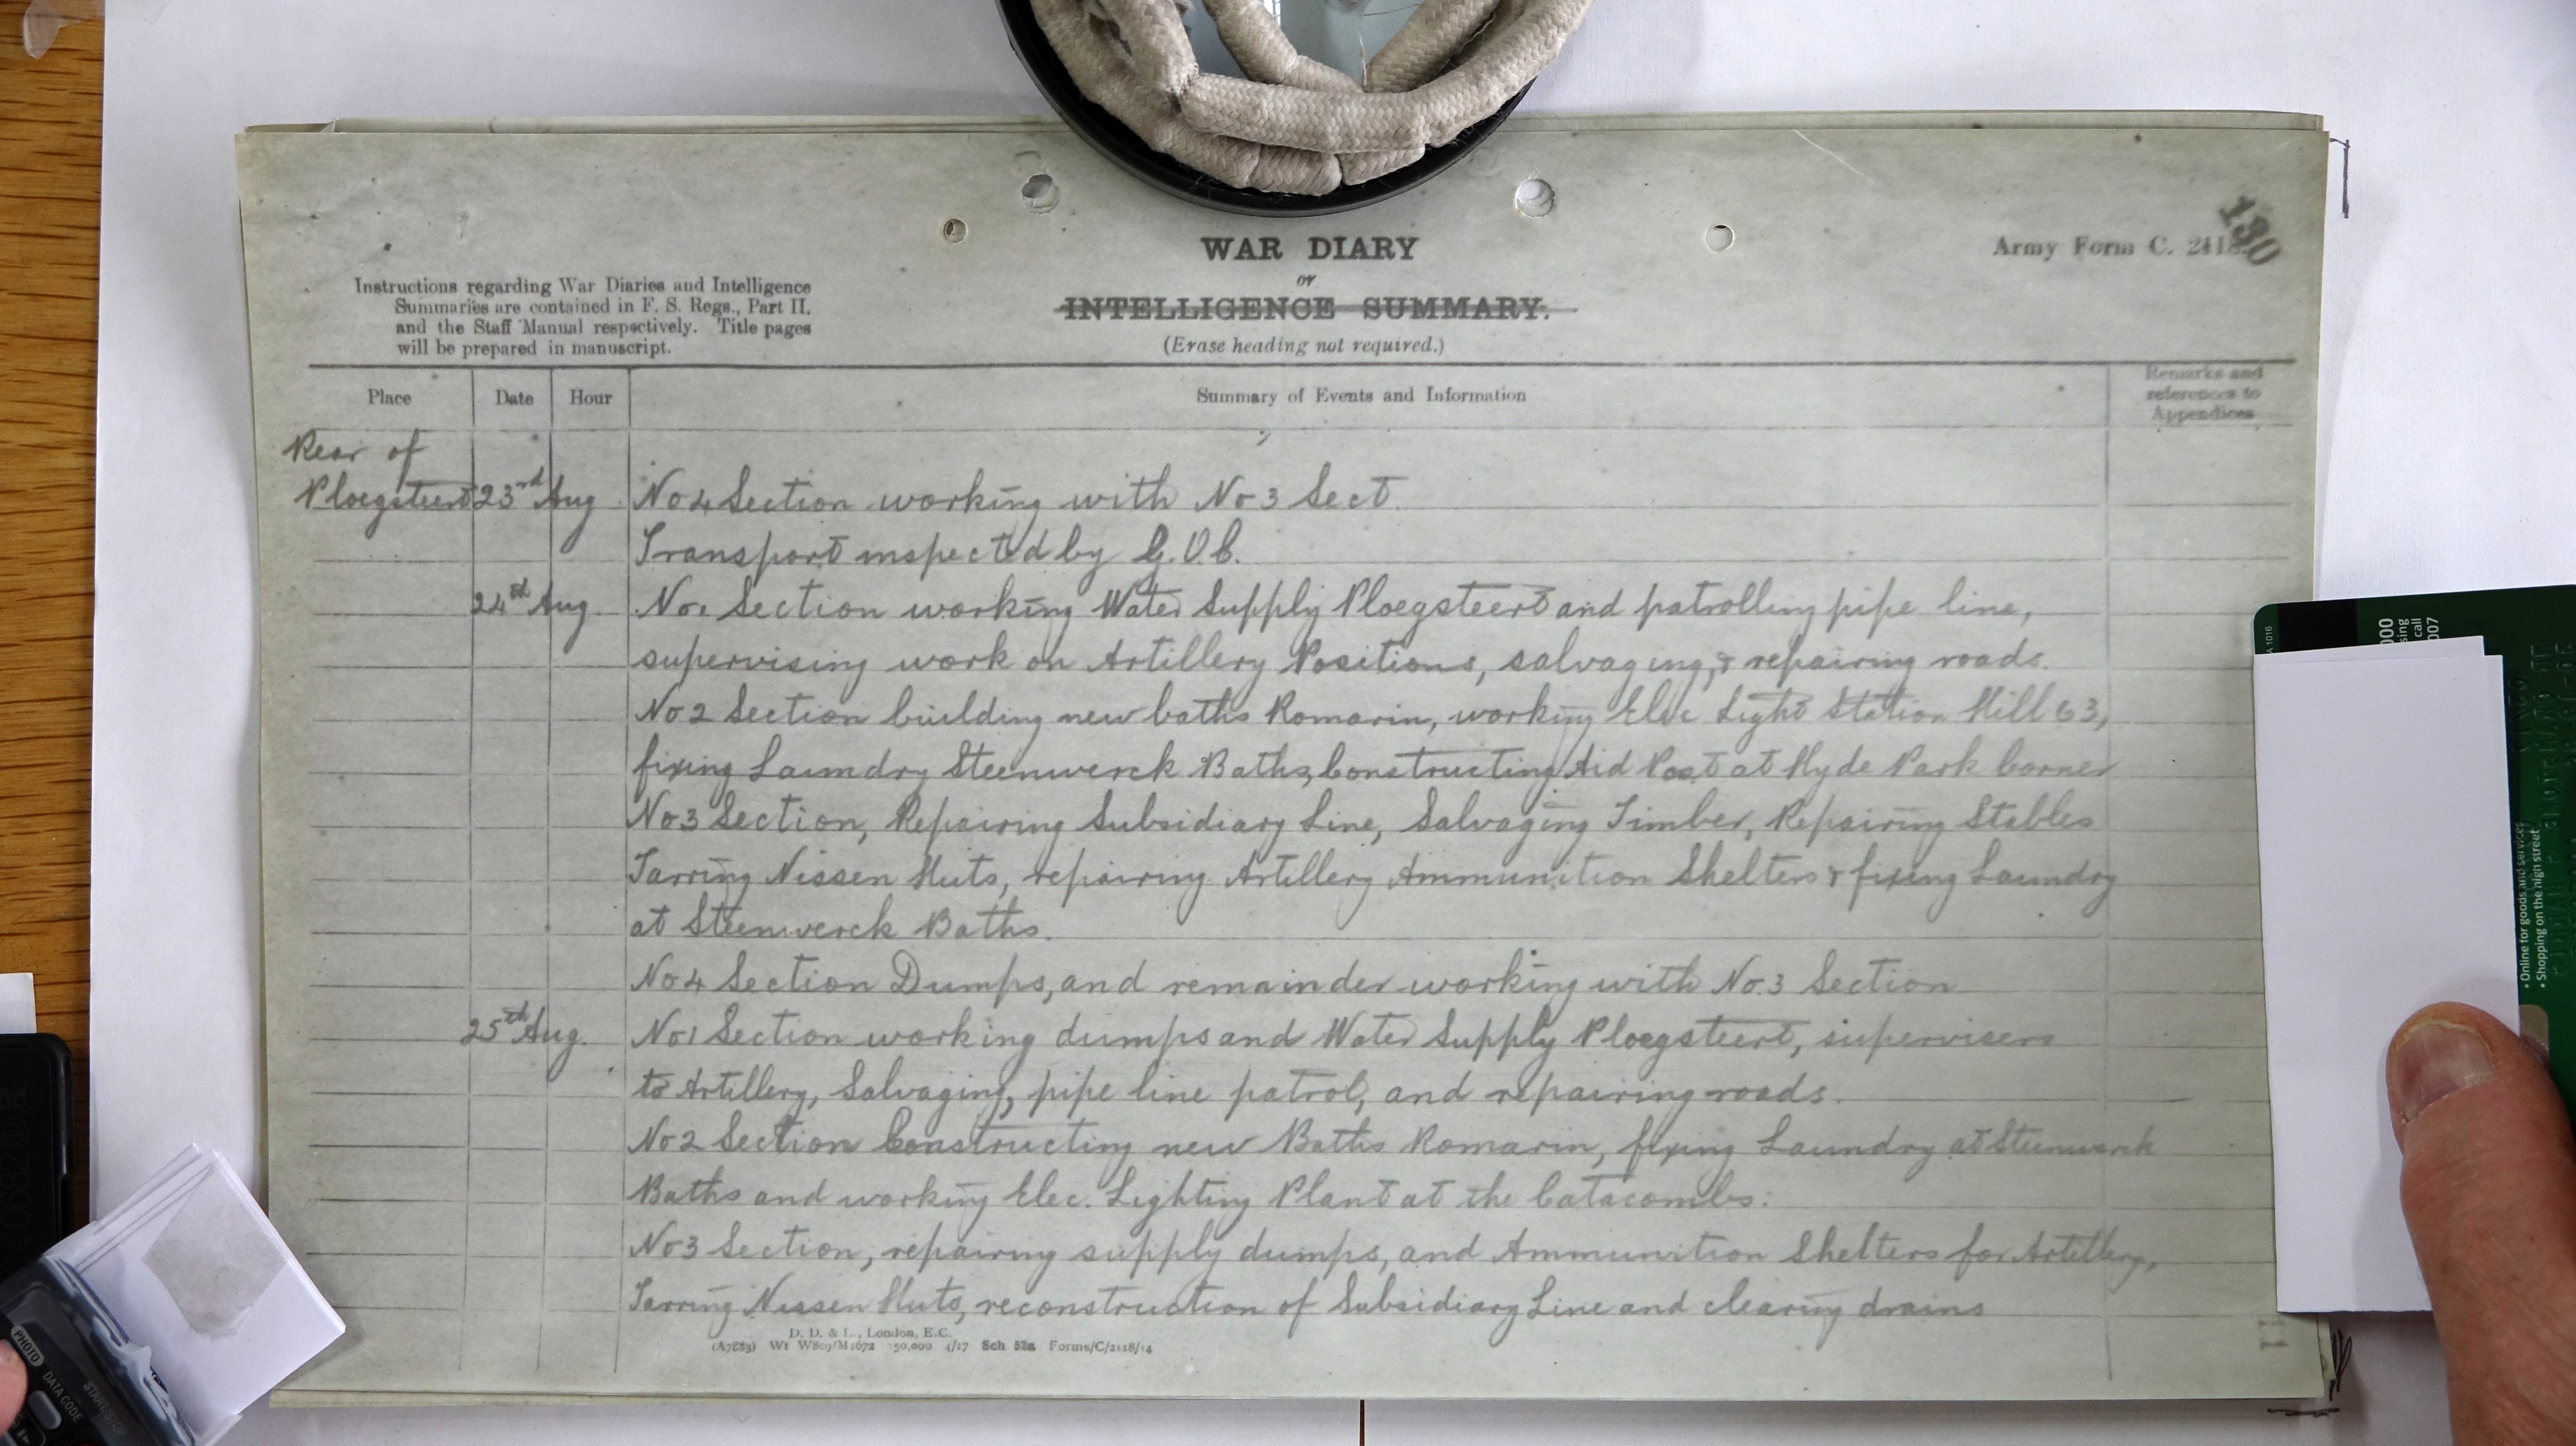 130
WAR DIARY
Army Form C. 2118.
or
INTELLIGENCE SUMMARY.
(Erase heading not required.)
Instructions regarding War Diaries and Intelligence
Summaries are contained in F. S. Regs., Part II.
and the Staff Manual respectively. Title pages
will be prepared in manuscript.
Place Date Hour Summary of Events and Information Remarks and
references to
Appendices
Rear of
Ploegsteert 23rd Aug No 4 Section working with No 3 Sect.
Transport inspected by G.O.C.
24th Aug. No 1 Section working Water Supply Ploegsteert and patrolling pipe line,
supervising work on Artillery Positions, salvaging, & repairing roads.
No 2 Section building new baths Romarin, working Elec Light Station Hill 63,
fixing Laundry Steenwerck Baths, Constructing Aid Post at Hyde Park Corner
No 3 Section, Repairing Subsidiary Line, Salvaging Timber, Repairing Stables
Tarring Nissen Huts, repairing Artillery Ammunition Shelters & fixing Laundry
at Steenwerck Baths.
No 4 Section Dumps, and remainder working with No. 3 Section
25th Aug. No 1 Section working dumps and Water Supply Ploegsteert, supervisers
to Artillery, Salvaging, pipe line patrol, and repairing roads.
No 2 Section Constructing new Baths Romarin, fixing Laundry at Steenwerck
Baths and working Elec. Lighting Plant at the Catacombs.
No 3 Section, repairing supply dumps, and Ammunition Shelters for Artillery,
Tarring Nissen Huts, reconstruction of Subsidiary Line and clearing drains
D. D. & L., London, E.C.
(A7883) Wt W809/M1672 350,000 4/17 Sch 52a Forms/C/2118/14
PHOTO
DATA CODE
000
sing
call
007
• Online for goods and services
• Shopping on the high street